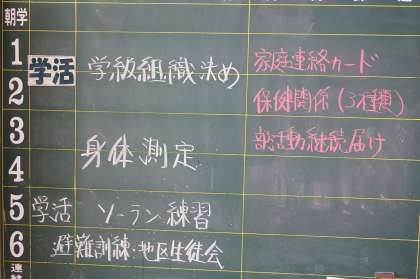 朝学
1 学活 学級組織決め 家庭連絡カード
2 保健関係(3種類)
3 部活動継続届け
4 身体測定
5 学活 ソーラン練習
6 避難訓練・地区生徒会
連絡